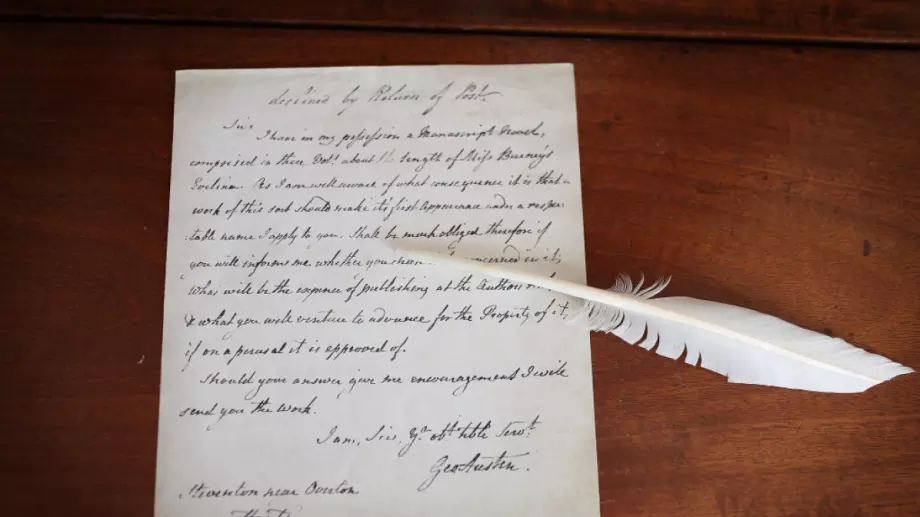 declined by Return of Post.
Sir
I have in my possession a Manuscript Novel,
comprised in three Vols. about the length of Miss Burney's
Evelina. As I am well aware of what consequence it is that a
work of this sort should make it's first Appearance under a respec-
:table name I apply to you. Shall be much obliged therefore if
you will inform me whether you chuse concerned in it;
What will be the expence of publishing at the Author's
& what you will venture to advance for the Property of it,
if on a perusal it is approved of.
Should your answer give me encouragement I will
send you the Work.
I am, Sir, Yr. obt. hble Servt.
Geo Austen.
Steventon near Overton